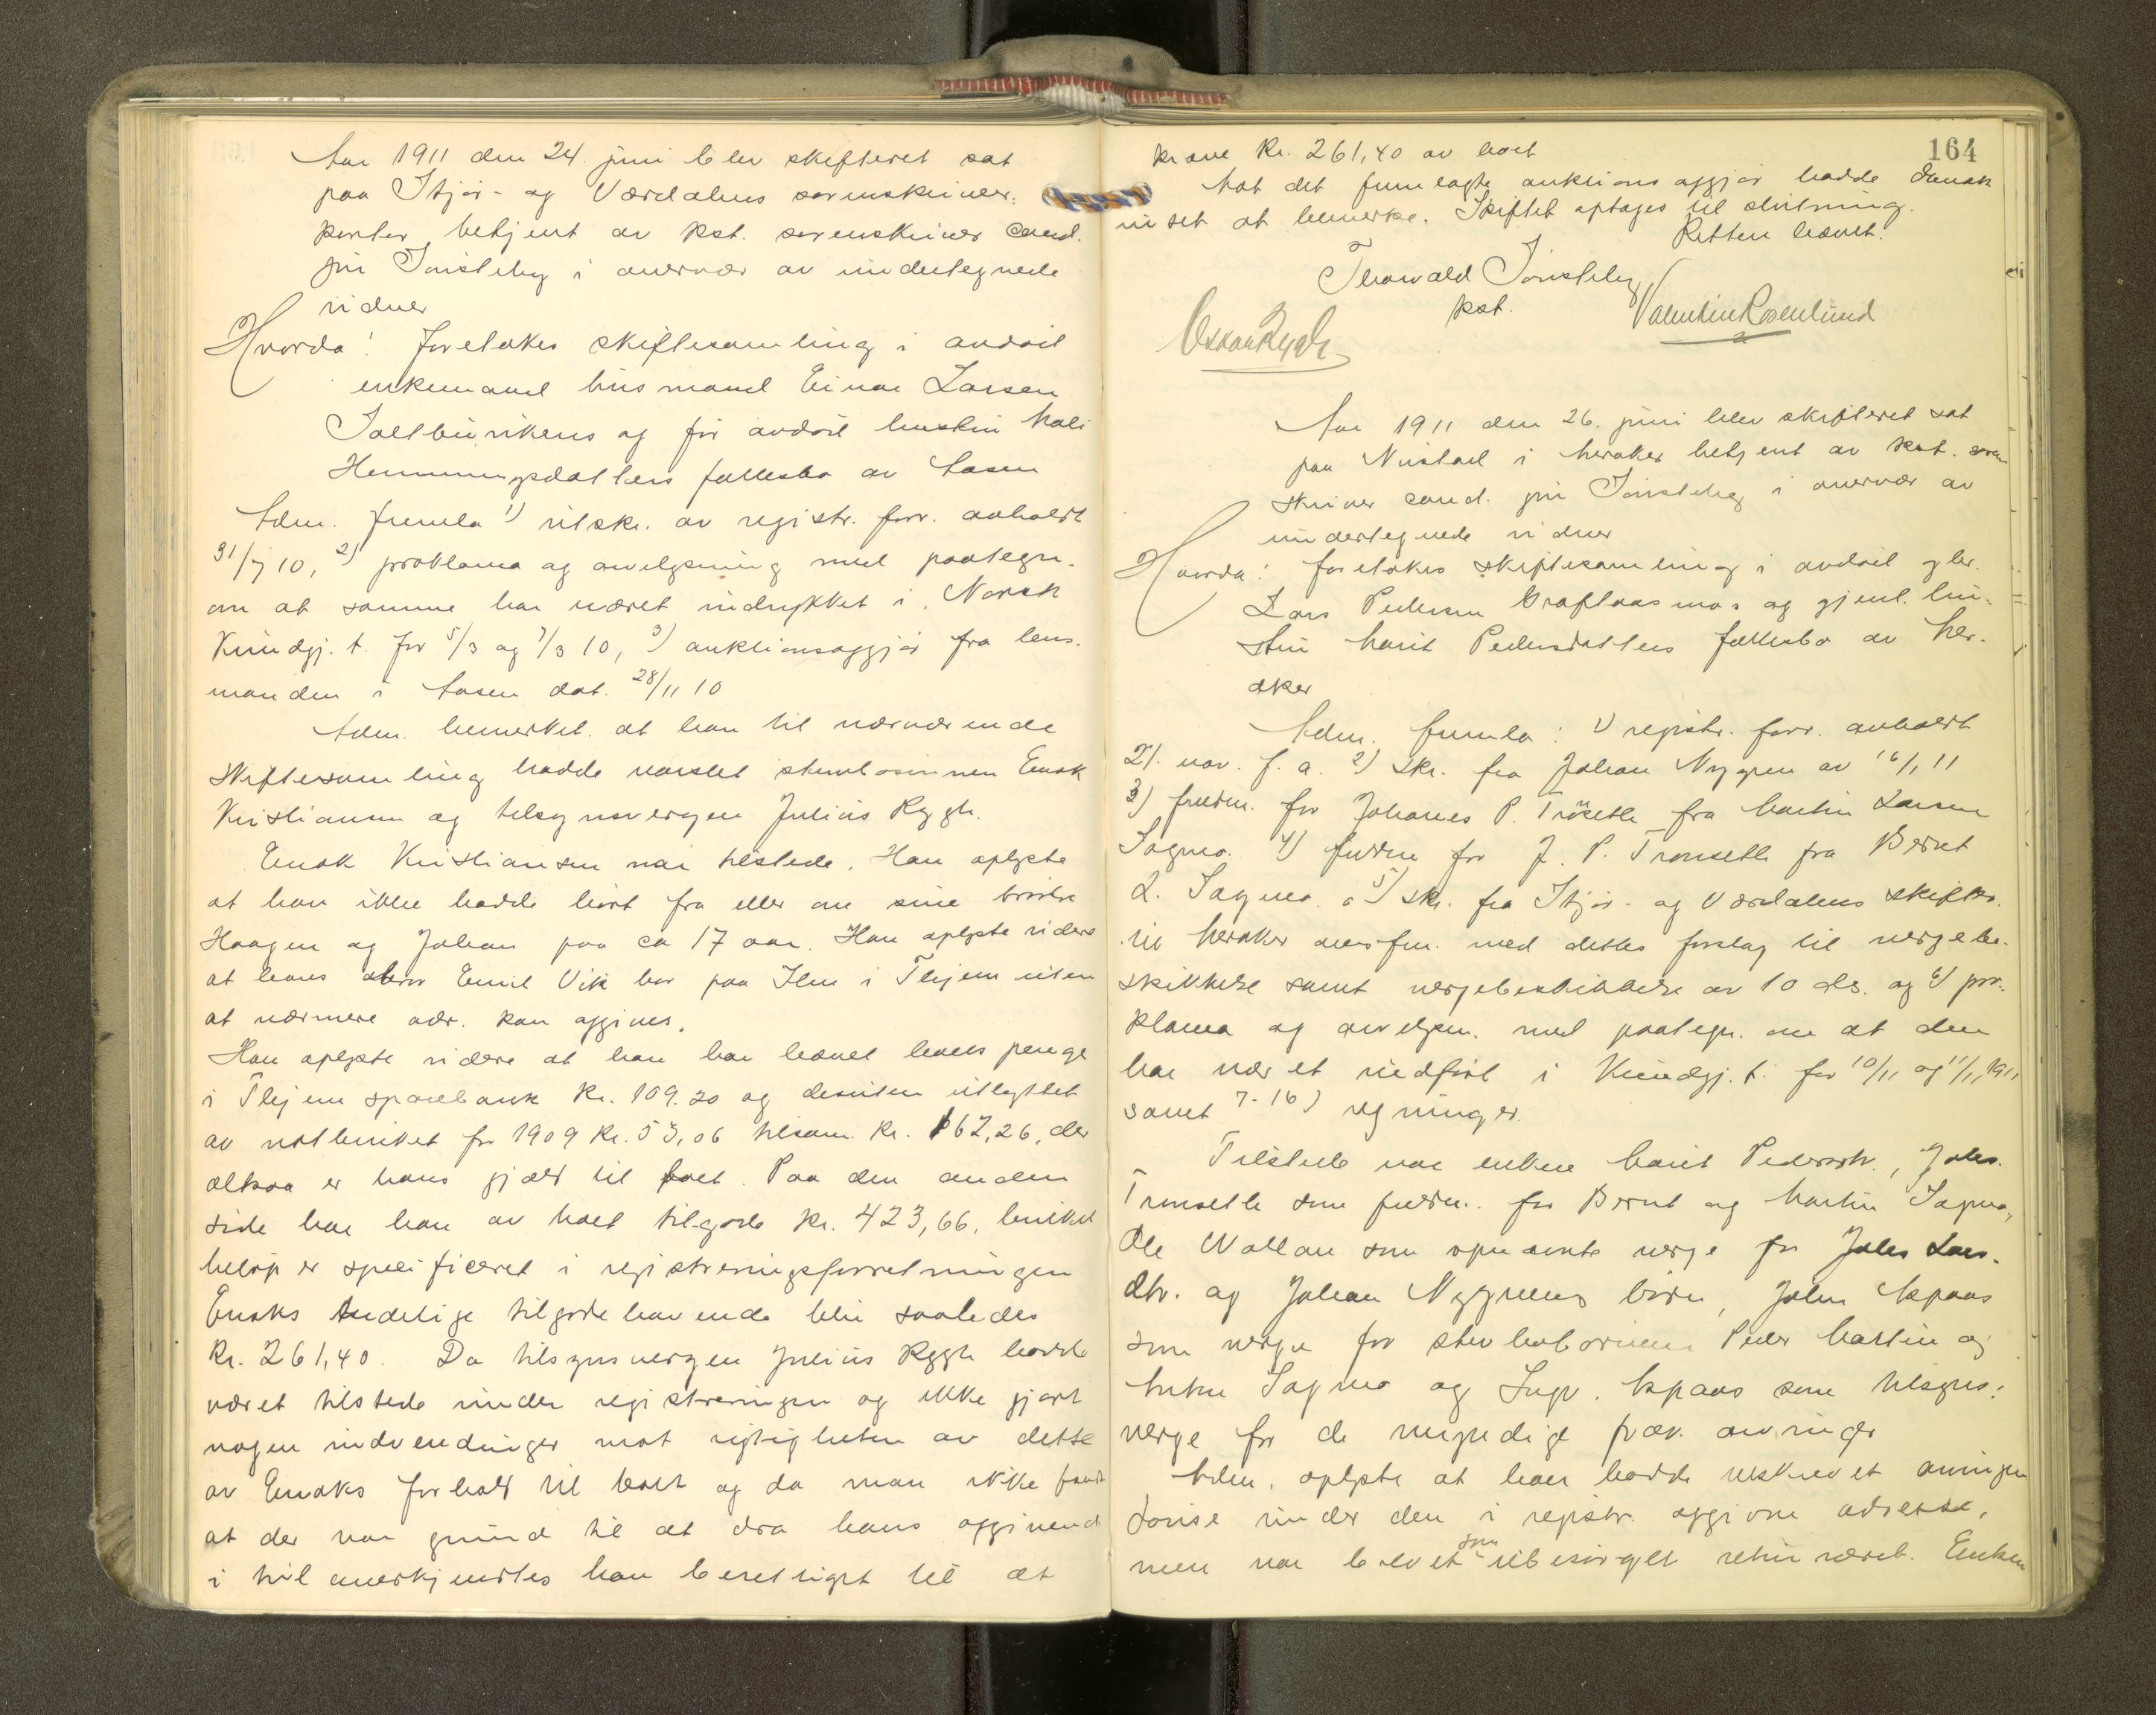 Aar 1911 den 24. juni blev skifteret sat
paa Stjør- og Værdalens sorenskriver-
kontor betjent av kst. sorenskriver cand.
jur Tonsteby i overvær av undertegnede
vidner
Hvorda! foretokes skiftesamling i avdød
enkemand husmand Einar Larsen
og før avdød hustru Mali
Hemmingsdatters fællesbo av Aasen
Adm. fremla 1) utskr. av registr. forr. avholdt
31/7 10, 2) proklama og arvelysning med paategn.
om at samme har været indrykket i Norsk
Kundgj. t. for 5/3 og 7/3 10, 3) auktionsopgjør fra lens-
manden i Aasen dat. 28/11 10
Adm. bemerket at han til nærværende
skiftesamling hadde varslet Enok
Kristiansen og tilsynsvergen Julius Rygh.
Enok Kristiansen var tilstede. Han oplyste
at han ikke hadde hørt fra eller om sine brødre
Haagen og Johan paa ca 17 aar. Han oplyste videre
at hans bror Emil Vik bor paa Ilen i Thjem uten
at nærmere adr. kan opgives.
Han oplyste videre at han har hævet boets penge
i Thjem sparebank Kr. 109.20 og desuten utbyttet
av notbruket for 1909 Kr. 53,06 tilsam. Kr. 162,26, der
altsaa er hans gjæld til boet. Paa den anden
side har han av boet tilgode Kr. 423,66, hvilket
beløp er specificeret i registreringsforretningen
Enoks endelige tilgodehavende blir saaledes
Kr. 261,40. Da tilsynsvergen Julius Rygh hadde
været tilstede under registreringen og ikke gjort
nogen indvendinger mot rigtigheten av dette
av Enoks forhold til boet og da man ikke fandt
at der var grund til at dra hans opgivende
i tvil anerkjendtes han berettiget til at
164
kræve Kr. 261,40 av boet
Mot det fremlagte auktionsopgjør hadde Enok
intet at bemerke. Skiftet optages til slutning.
Retten hævet.
Thorvald Tonsteby
kst.
Valentin Rosenlund
Oskar Rygh
Aar 1911 den 26. juni blev skifteret sat
paa Nustad i Meraker betjent av kst. soren
skriver cand. jur Tonsteby i overvær av
undertegnede vidner
Hvorda! foretokes skiftesamling i avdød gbr.
Lars Pedersen Kraftaasmo og gjenl. hu-
stru Marit Pedersdatters fællesbo av Mer-
aker
Adm. fremla: 1) registr. forr. avholdt
21. nov. f. a. 2) skr. fra Johan Nygren av 16/1 11
3) fuldm. for Johanes P. Trøsetle fra Martin Larsen
Sagmo. 4) fuldm for J. P. Tronsetle fra Bernt
L. Sagmo. 5) skr. fra Stjør- og Værdalens skifter.
til Meraker overfm. med dettes forslag til vergebe-
skikkelse samt vergebeskikkelse av 10 ds. og 6) pro-
klama og arvelysn. med paategn. om at den
har været indført i Kundgj. t. for 10/11 og 11/11 1911
samt 7-16) regninger.
Tilstede var enken Marit Pedersdtr., Johs.
Tronsetle som fuldm. for Bernt og Martin Sagmo,
Ole Wollan som opnævnte verge for Johs Lars-
dtr. og Johan Nygrens børn, John Aspaas
som verge for Peder Martin og
Anton Sagmo og Ingv. Aspaas som tilsyns-
verge for de umyndige præv. arvinger
Adm. oplyste at han hadde tilskrevet arvingen
Lovise under den i registr. opgivne adresse,
men var brevet som ubesørget retur været. Enken